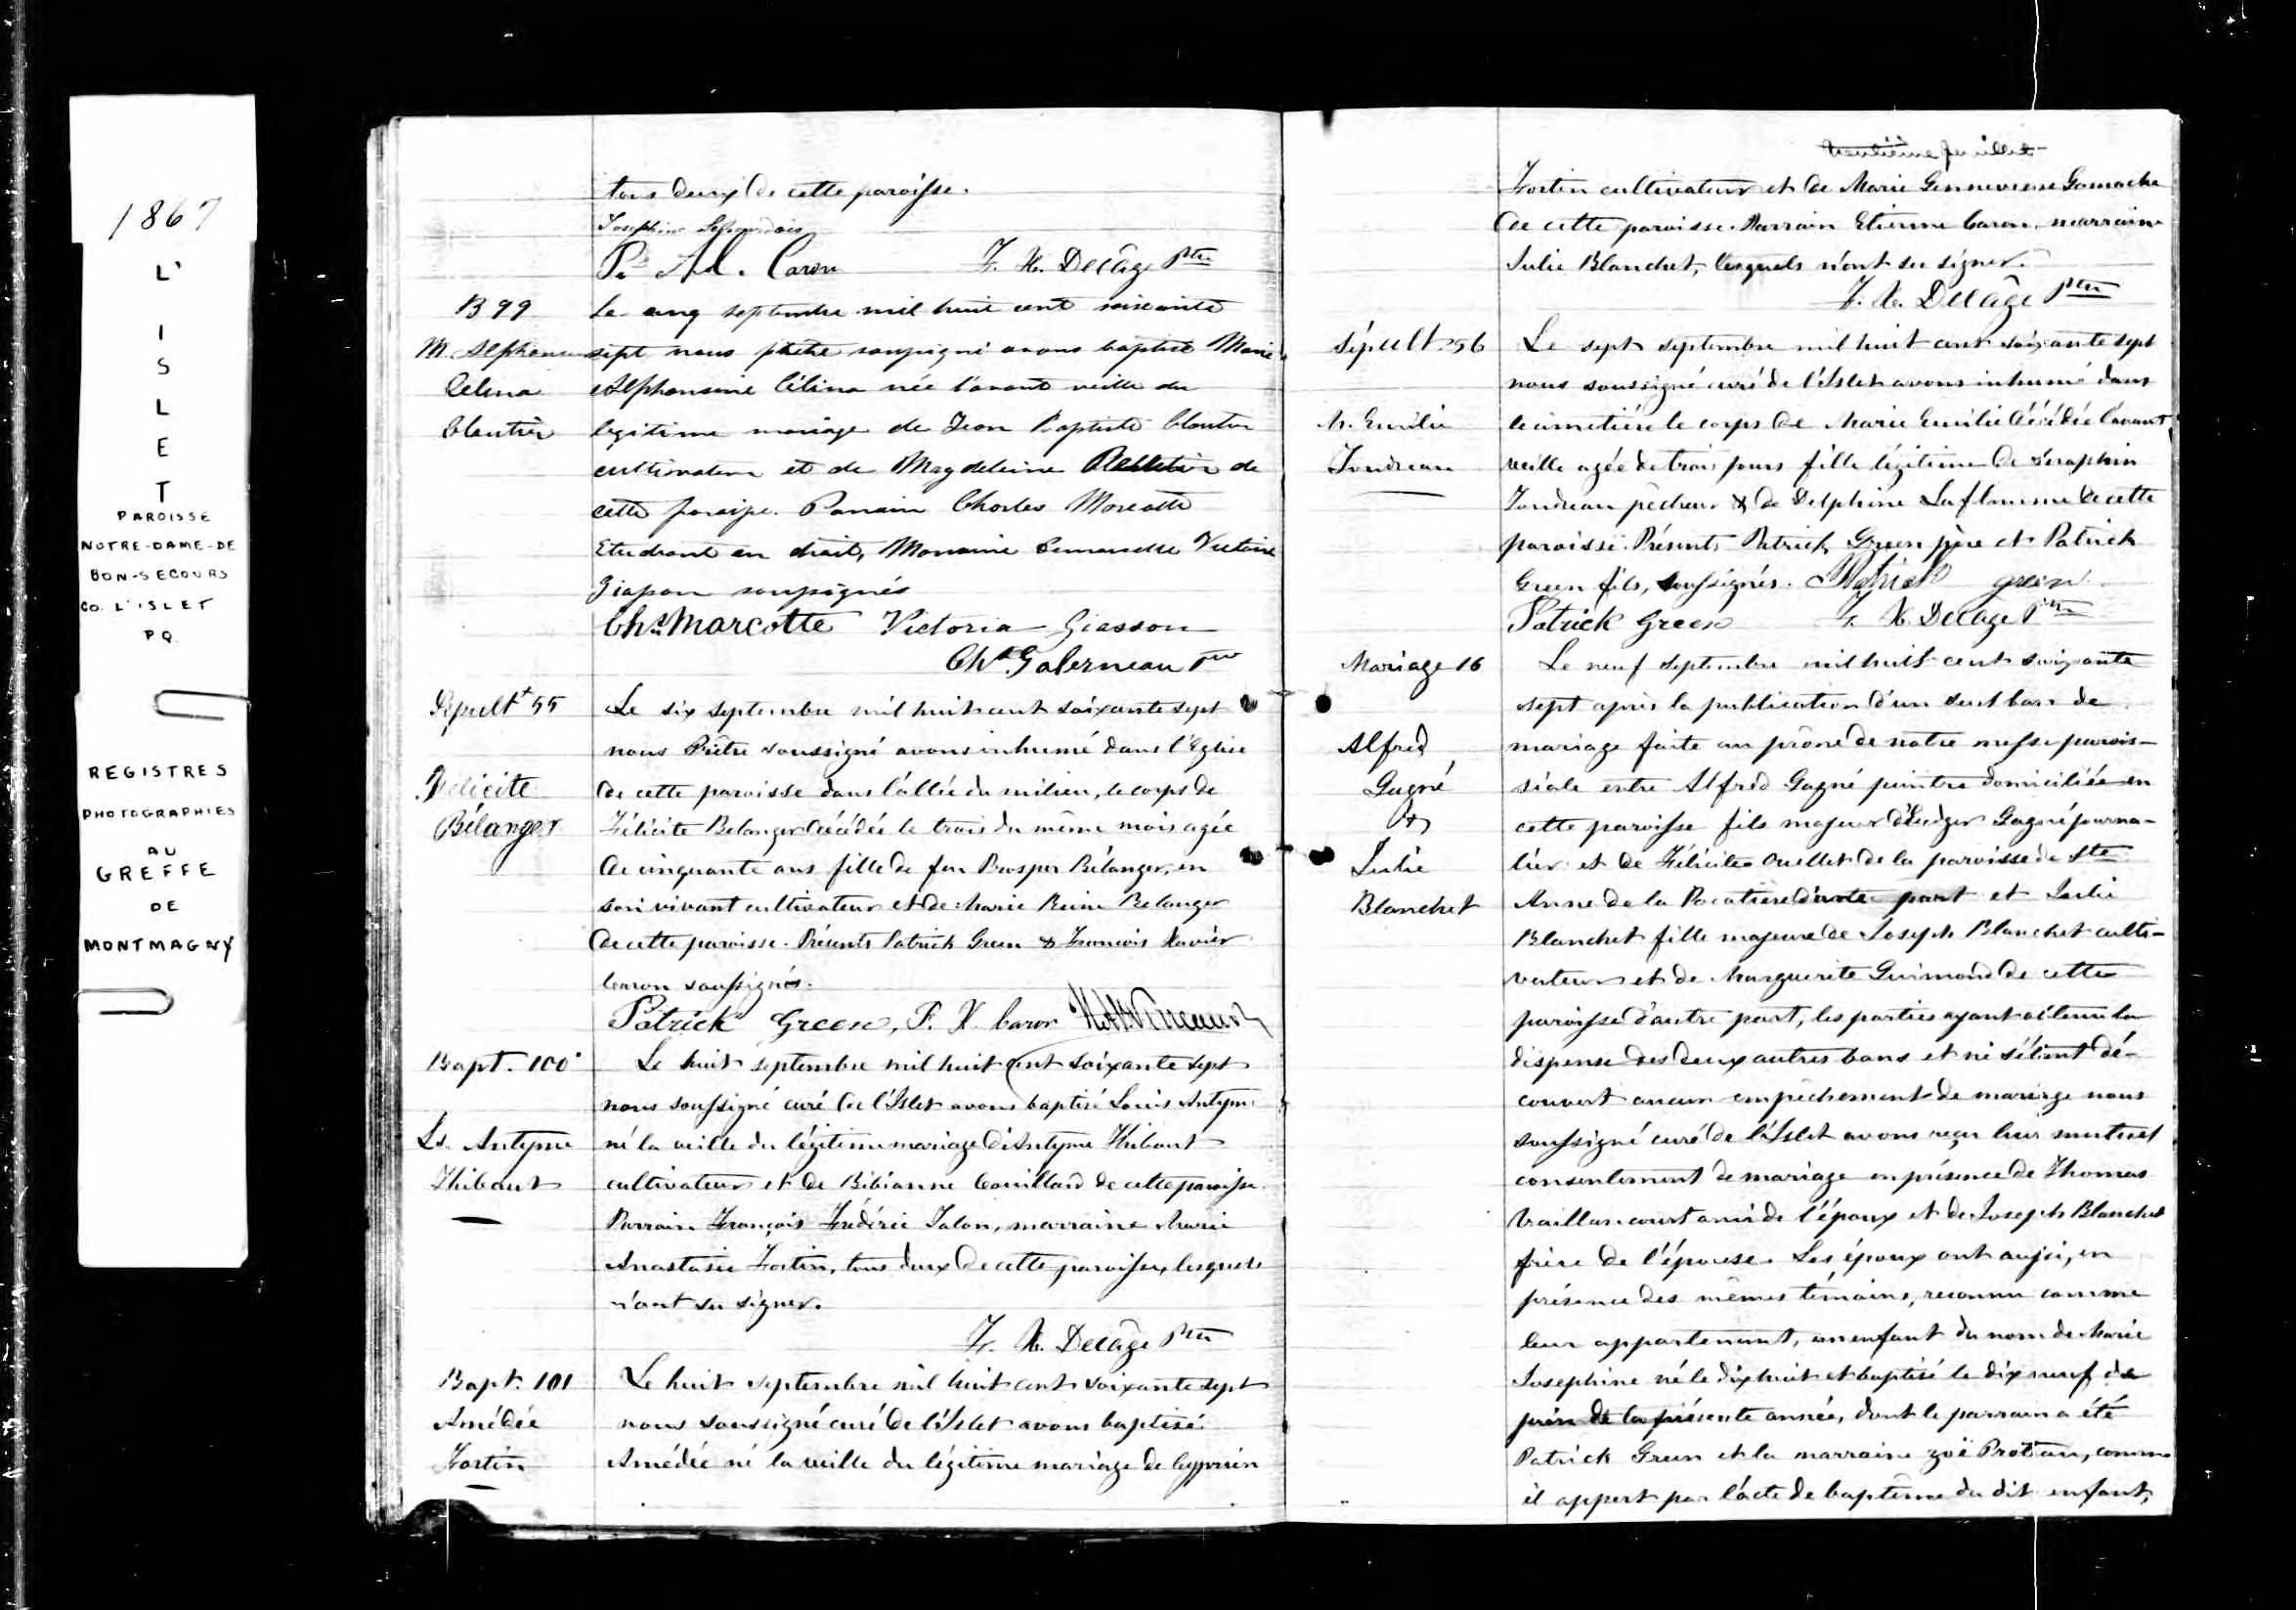 1867
L'
I
S
L
E
T
PAROISSE
NOTRE-DAME-DE
BON-SECOURS
CO. L'ISLET
P.Q.
REGISTRES
PHOTOGRAPHIES
AU
GREFFE
DE
MONTMAGNY
tous deux de cette paroisse.
Josephine
P. Ad. Caron F. X. Delâge Ptre
B 99
M. Alphonsine
Celina
Cloutier
Le cinq septembre mil huit cent soixante
sept nous prêtre soussigné avons baptisé Marie
Alphonsine Célina née l'avant veille du
legitime mariage de Jean Baptiste Cloutier
cultivateur et de Magdeleine Pelletier de
cette paroisse. Parrain Charles Marcotte
Etudiant en droit, Marraine Demoiselle Victoire
Giasson soussignés
Chs. Marcotte Victoria Giasson
Chs. Galerneau Ptre
Sépult 55
Félicité
Bélanger
Le six septembre mil huit cent soixante sept
nous Prêtre soussigné avons inhumé dans l'Eglise
de cette paroisse dans l'allée du milieu, le corps de
Félicité Bélanger décédée le trois du même mois agée
de cinquante ans fille de feu Prosper Bélanger, en
son vivant cultivateur et de Marie Reine Belanger
de cette paroisse. Présents Patrick Green & François Xavier
Caron soussignés.
Patrick Green, F. X. Caron
Bapt. 100
Ls. Antyme
Thibaut
Le huit septembre mil huit cent soixante sept
nous soussigné curé de l'Islet avons baptisé Louis Antyme
né la veille du légitime mariage d'Antyme Thibaut
cultivateur et de Bibianne Couillard de cette paroisse.
Parrain François Frédéric Talon, marraine Marie
Anastasie Fortin, tous deux de cette paroisse, lesquels
n'ont su signer.
F. X. Delâge Ptre
Bapt. 101
Amédée
Fortin
Le huit septembre mil huit cent soixante sept
nous soussigné curé de l'Islet avons baptisé
Amédée né la veille du légitime mariage de Cyprien
feuillet
Fortin cultivateur et de Marie Gennevieve Gamache
de cette paroisse. Parrain Etienne Caron, marraine
Julie Blanchet, lesquels n'ont su signer.
F. X. Delâge Ptre
Sépult. 56
M. Emilie
Jondreau
Le sept septembre mil huit cent soixante sept
nous soussigné curé de l'Islet avons inhumé dans
le cimetière le corps de Marie Emilie décédée l'avant
veille agée de trois jours fille légitime de Seraphin
Jondreau pêcheur & de Delphine Laflamme de cette
paroisse. Présents Patrick Green père et Patrick
Green fils, soussignés. Patrick green
Patrick Green F. X. Delage Ptre
Mariage 16
Alfred
Gagné
&
Julie
Blanchet
Le neuf septembre mil huit cent soixante
sept après la publication d'un seul ban de
mariage faite au prône de notre messe parois-
siale entre Alfred Gagné peintre domiciliée en
cette paroisse fils majeur d'Ludger Gagné journa-
lier et de Félicité Ouellet de la paroisse de Ste
Anne de la Pocatiere d'une part et Julie
Blanchet fille majeure de Joseph Blanchet culti-
vateur et de Marguerite Guimond de cette
paroisse d'autre part, les parties ayant obtenu la
dispense des deux autres bans et ne s'étant dé-
couvert aucun empêchement de mariage nous
soussigné curé de l'Islet avons reçu leur mutuel
consentement de mariage en présence de Thomas
Vaillancourt ami de l'époux et de Joseph Blanchet
frère de l'épouse. Les époux ont aussi, en
présence des mêmes témoins, reconnu comme
leur appartenant, un enfant du nom de Marie
Josephine né le dix huit et baptisé le dix neuf de
juin de la présente année, dont le parrain a été
Patrick Green et la marraine zoë, comme
il appert par l'acte de baptême du dit enfant,